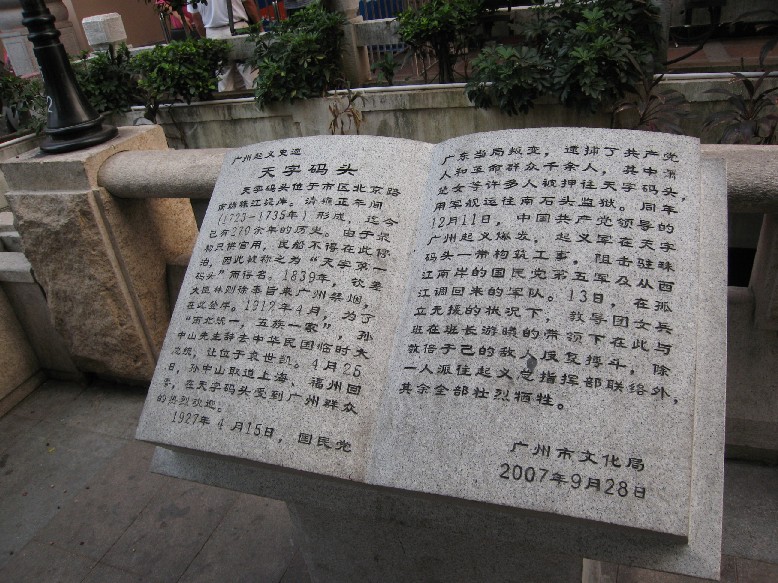 广州起义史迹
天字码头
天字码头位于市区北京路
南端珠江北岸。清雍正年间
(1723—1735年)形成,迄今
已有270余年的历史。由于最
初只供官用,民船不得在此停
泊,因此被称之为“天字第一
码头”而得名。1839年,钦差
大臣林则徐奉旨来广州禁烟,
在此登岸。1912年4月,为了
“南北统一,五族一家”,孙
中山先生辞去中华民国临时大
总统,让位于袁世凯。4月25
日,孙中山取道上海、福州回
粤,在天字码头受到广州群众
的热烈欢迎。
1927年4月15日,国民党
广东当局叛变,逮捕了共产党
人和革命群众千余人,其中萧
楚女等许多人被押往天字码头,
用军舰运往南石头监狱。同年
12月11日,中国共产党领导的
广州起义爆发,起义军在天字
码头一带构筑工事,阻击驻珠
江南岸的国民党第五军及从西
江调回来的军队。13日,在孤
立无援的状况下,教导团女兵
班在班长游曦的带领下在此与
数倍于己的敌人反复搏斗,除
一人派往起义总指挥部联络外,
其余全部壮烈牺牲。
广州市文化局
2007年9月28日